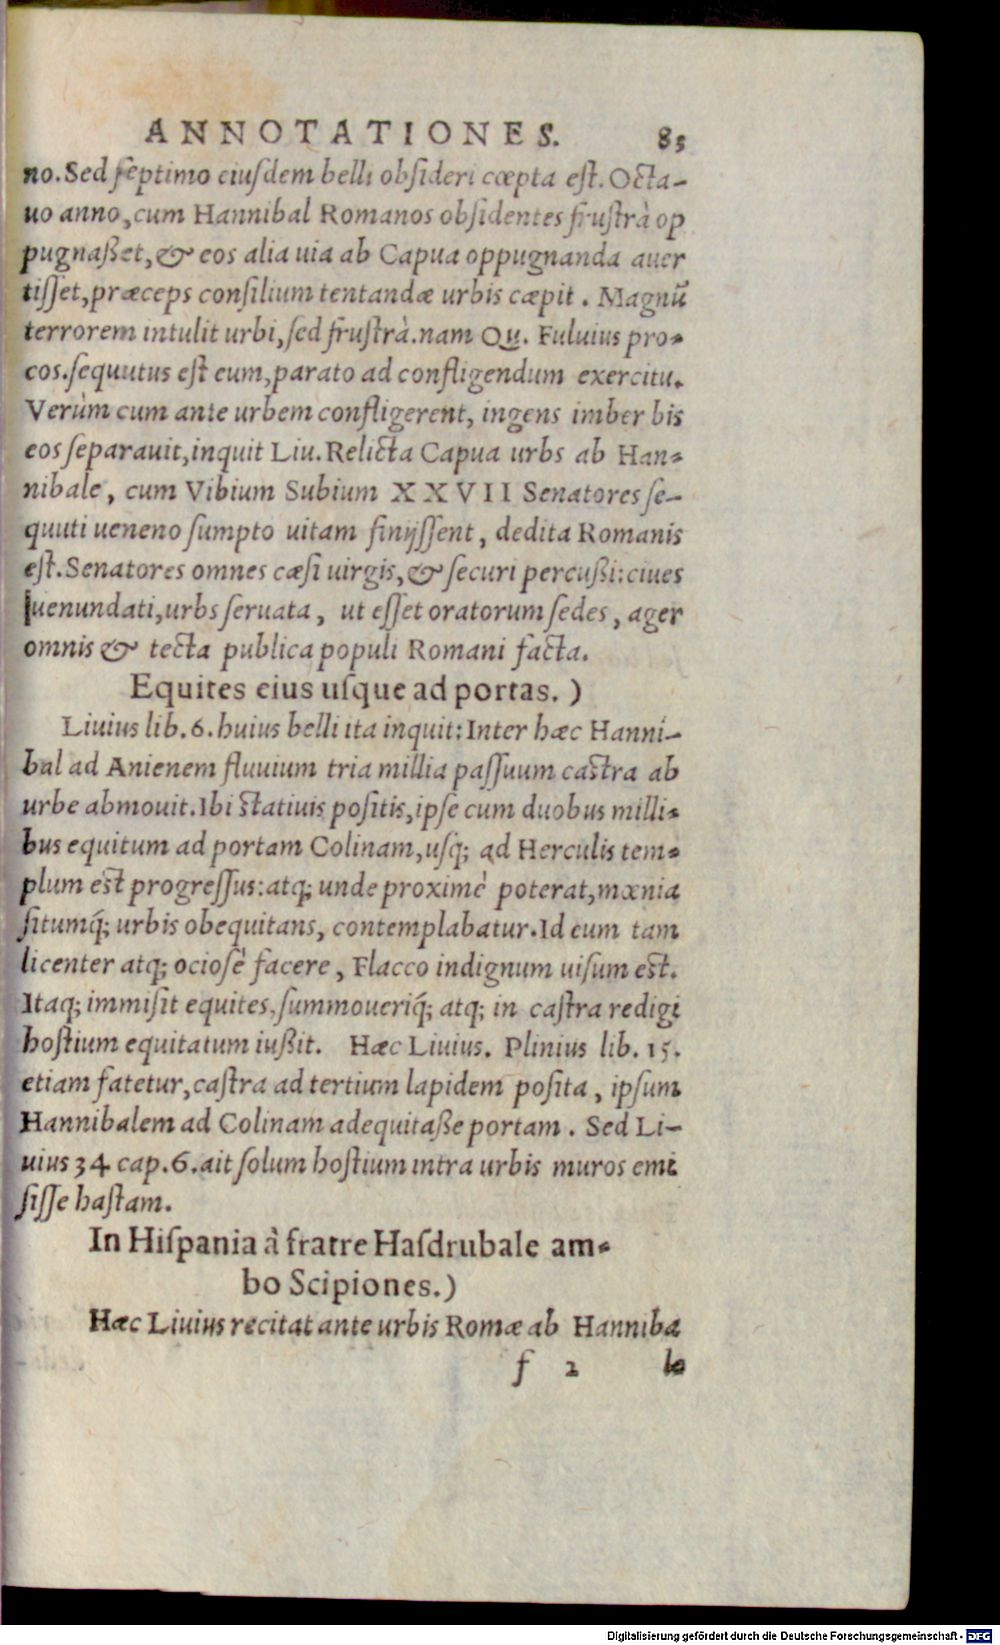 ANNOTATIONES. 85
no. Sed ſeptimo eiuſdem belli obſideri cœpta eſt. Octa-
uo anno, cum Hannibal Romanos obſidentes fruſtrà op
pugnaßet, & eos alia uia ab Capua oppugnanda auer
tiſſet, præceps conſilium tentandæ urbis cæpit. Magnũ
terrorem intulit urbi, ſed fruſtrà. nam Qu. Fuluius pro-
cos. ſequutus eſt eum, parato ad confligendum exercitu.
Verùm cum ante urbem confligerent, ingens imber bis
eos ſeparauit, inquit Liu. Relicta Capua urbs ab Han-
nibale, cum Vibium Subium XXVII Senatores ſe-
quuti ueneno ſumpto uitam finijſſent, dedita Romanis
eſt. Senatores omnes cæſi uirgis, & ſecuri percußi: ciues
uenundati, urbs ſeruata, ut eſſet oratorum ſedes, ager
omnis & tecta publica populi Romani facta.
Equites eius uſque ad portas.)
Liuius lib. 6. huius belli ita inquit: Inter hæc Hanni-
bal ad Anienem fluuium tria millia paſſuum caſtra ab
urbe abmouit. Ibi ſtatiuis poſitis, ipſe cum duobus milli-
bus equitum ad portam Colinam, uſq; ad Herculis tem-
plum eſt progreſſus: atq; unde proximè poterat, mœnia
ſitumq́; urbis obequitans, contemplabatur. Id eum tam
licenter atq; ocioſè facere, Flacco indignum uiſum eſt.
Itaq; immiſit equites, ſummoueriq́; atq; in caſtra redigi
hoſtium equitatum iußit. Hæc Liuius. Plinius lib. 15.
etiam fatetur, caſtra ad tertium lapidem poſita, ipſum
Hannibalem ad Colinam adequitaße portam. Sed Li-
uius 34 cap. 6. ait ſolum hoſtium intra urbis muros emi
ſiſſe haſtam.
In Hiſpania à fratre Haſdrubale am-
bo Scipiones.)
Hæc Liuius recitat ante urbis Romæ ab Hanniba
f 2 le
Digitalisierung gefördert durch die Deutsche Forschungsgemeinschaft - DFG